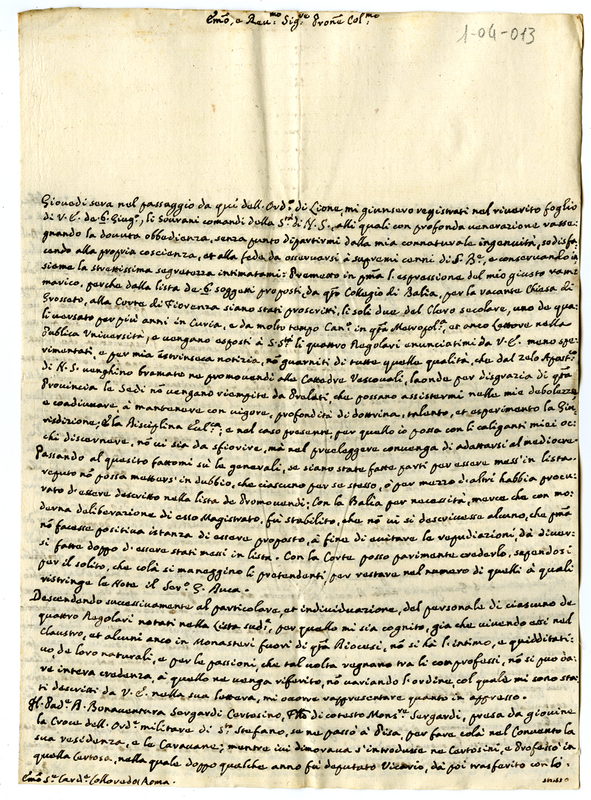 Emo, e Reu:mo Sigre Prone Colmo
1-04-013
Giouedi sera nel passaggio da qui dell'Ord.o di Lione, mi giunsero registrati nel riuerito foglio
di V. E. de 6. Giug.o, li Sourani comandi della S.tà di N. S., alli quali con profonda venerazione rasse=
gnando la douuta obbedienza, senza punto dipartirmi dalla mia connaturale ingenuità, sodisfa=
cendo alla propria coscienza, et alla fede da osseruarsi à supremi cenni di S. B.ne, e conseruando in=
sieme la strettissima segretezza intimatami: Premetto in pma l'espressione del mio giusto ram=
marico, perche dalla lista de 6 soggetti proposti, da qsto Collegio di Balìa, per la vacante Chiesa di
Grosseto, alla Corte di Fiorenza siano stati proscritti, li soli due del Clero secolare, uno de qua=
li versato per più anni in Curia, e da molto tempo Can.co in qsta Metropol.na, et anco Lettore nella
Publica Vniuersità, e vengano esposti à S. S.tà li quattro Regolari enunciatimi da V. E. meno spe=
rimentati, e per mia estrinseca notizia, nõ guarniti di tutte quelle qualità, che dal zelo Apost.co
di N. S. venghino bramate ne promouendi alle Cattedre Vescouali, laonde per disgrazia di qsta
Prouincia le Sedi nõ vengano riempite da Prelati, che possano assistermi nelle mie debolezze
e coadiuuare, à mantenere con vigore, profondità di dottrina, talento, et esperimento la Giu=
risdizione, e la Disciplina Eccl.ca; e nel caso presente, per quello io possa con li caliganti miei oc=
chi discernere, nõ vi sia da sfiorire, mà nel preeleggere conuenga di adattarsi al mediocre
Passando al quesito fattomi sù le generali, se siano state fatte parti per essere mess'in lista.
reputo nõ possa mettersi in dubbio, che ciascuno per se stesso, ò per mezzo di altri habbia procu=
rato d'essere descritto nella lista de Promouendi; Con la Balìa per necessità, merce che con mo=
derna deliberazione di esso Magistrato, fu stabilito, che nõ vi si descriuesse alcuno, che pma
nõ facesse positiua istanza di essere proposto, à fine di euitare le repudiazioni, da diuer=
si fatte doppo d'essere stati messi in lista. Con la Corte posso parimente crederlo, sapendosi
per il solito, che colà si maneggino li pretendenti, per restare nel numero di quelli à quali
ristringe le Note il Ser.mo G. Duca.
Descendendo successiuamente al particolare, et indiuiduazione, del personale di ciascuno de
quattro Regolari notati nella Lista sud.a, per quello mi sia cognito, già che viuendo essi nel
Claustro, et alcuni anco in Monasteri fuori di qsta Diocesi, nõ si hà l'intimo, e quidditati=
uo, de loro naturali, e per le passioni, che tal volta regnano tra li comprofessi, nõ si può da=
re intera credenza, à quello ne venga riferito, nõ variando l'ordine, col quale mi sono sta=
ti descritti da V. E. nella sua lettera, mi occore rappresentare quanto in appresso.
Il Pad.e D. Bonauentura Sergardi Certosino, di cotesto Mons.re Sergardi, presa da giouine
la Croce dell'Ord.e militare di S.to Stefano, se ne passò à Pisa, per fare colà nel Conuento la
sua residenza, e le Carauane; mentre iui dimoraua s'introdusse ne Certosini, e Professò in
quella Certosa, nella quale doppo qualche anno fu deputato Vicario, dà poi trasferito con lo
Emo S.re Card.le Colloredo (Roma.
stesso